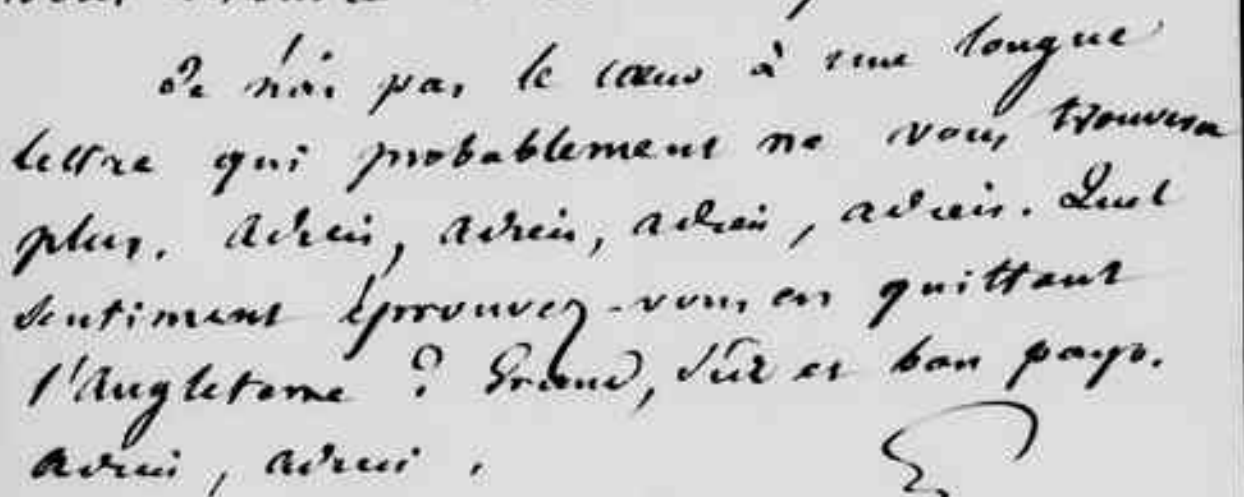 Je n'ai pas le cœur à une longue
lettre qui probablement ne vous trouvera
plus. adieu, adieu, adieu, adieu. Quel
sentiment éprouvez-vous en quittant
l'Angleterre ? Grand, sûr et bon pays.
adieu, adieu.